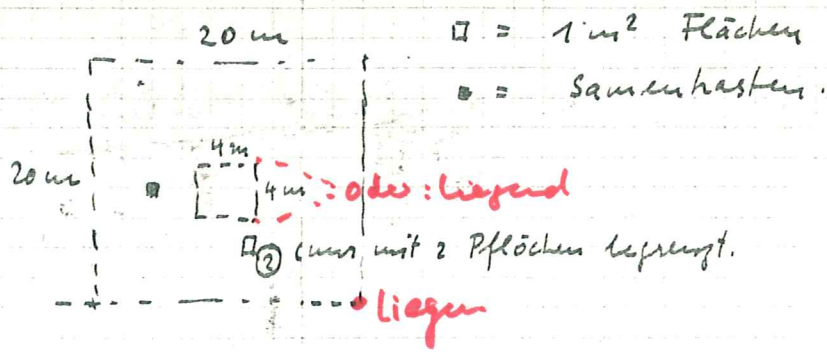 20 m
□ = 1 m² Flächen
▪ = Samenkasten.
4 m
20 m
4 m
oder: liegend
□ ② (nur mit 2 Pflöcken begrenzt.
liegen